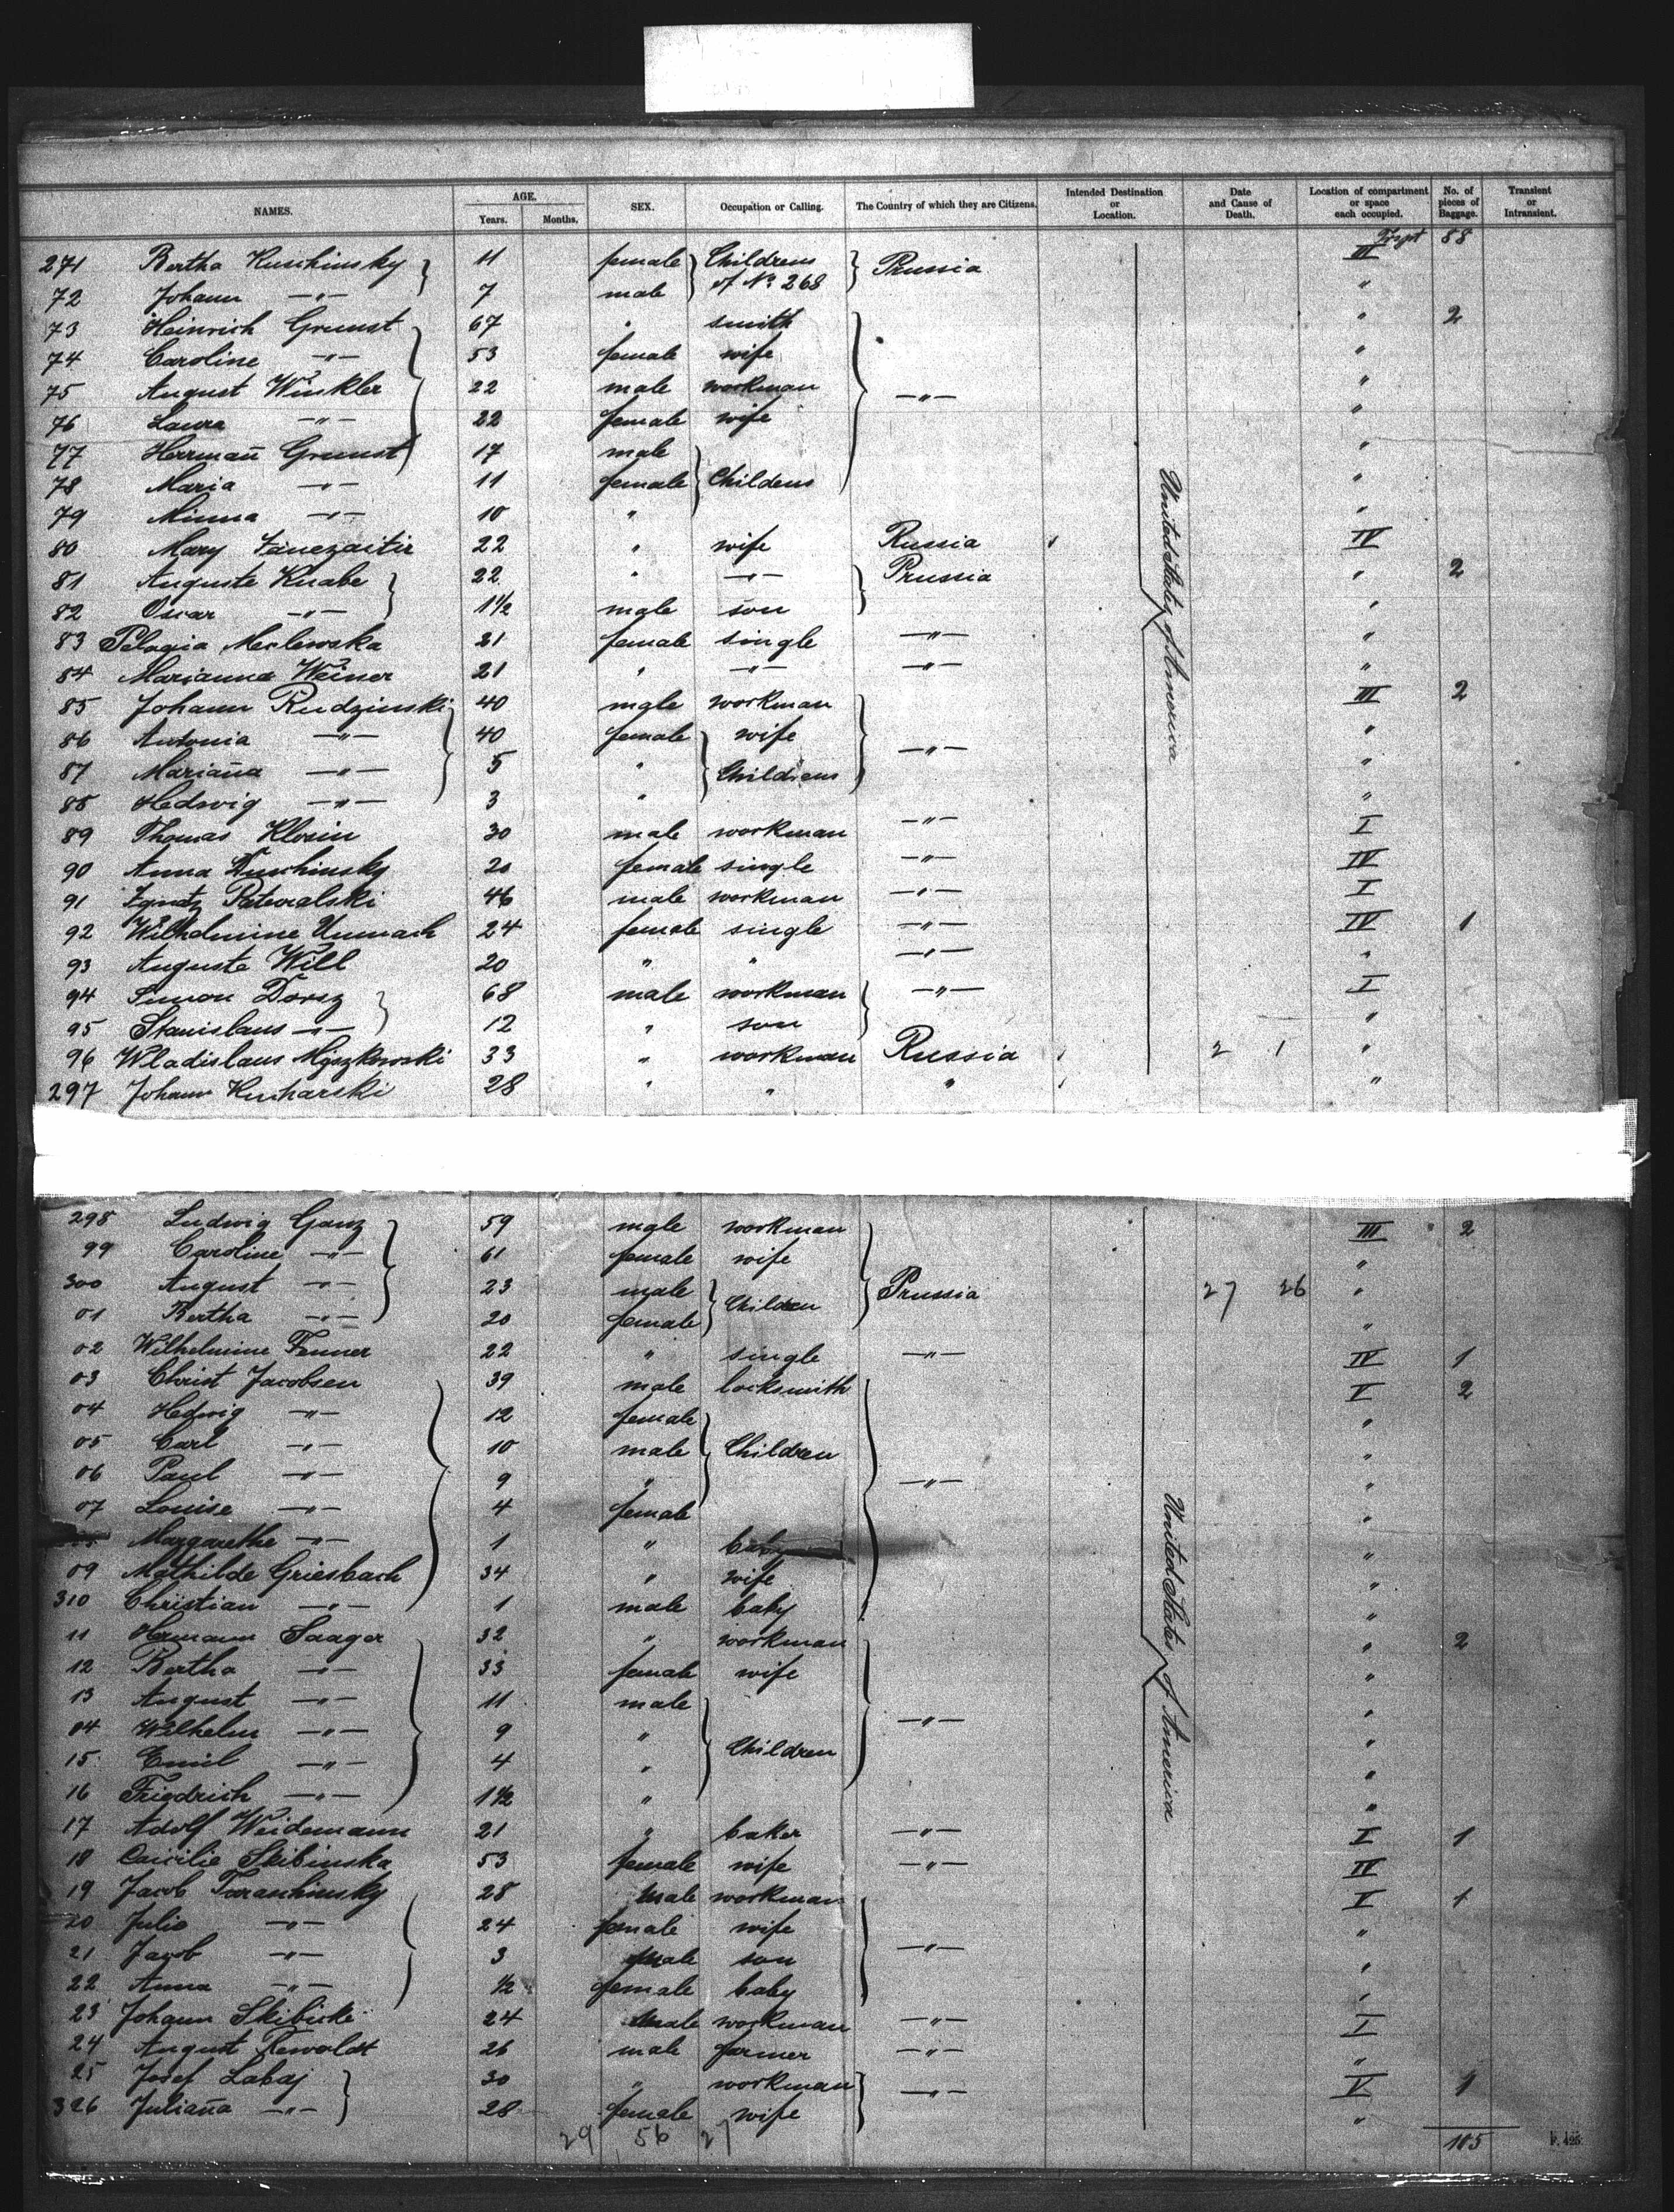 NAMES. AGE. Years. Months. SEX. Occupation or Calling. The Country of which they are Citizens. Intended Destination or Location. Date and Cause of Death. Location of compartment or space each occupied. No. of pieces of Baggage. Transient or Intransient.
88
271 Bertha Kuschinsky 11 female Childrens of No 268 Prussia III
72 Johann —"— 7 male "
73 Heinrich Grunst 67 " smith " 2
74 Caroline —"— 53 female wife "
75 August Winkler 22 male workman —"— "
76 Laura —"— 22 female wife "
77 Hermann̄ Grunst 17 male "
78 Maria —"— 11 female Childens "
79 Minna —"— 10 " "
80 Mary 22 " wife Russia IV
81 Auguste Knabe 22 " —"— Prussia " 2
82 Oscar —"— 1½ male son "
83 Pelagia 21 female single —"— "
84 Marianna Weiner 21 " —"— —"— "
85 Johann Rudzinski 40 male workman III 2
86 Antonia —"— 40 female wife —"— "
87 Marian̄a —"— 5 " Childrens "
88 Hedwig —"— 3 " "
89 Thomas Klosin 30 male workman —"— I
90 Anna 20 female single —"— IV
91 Ignatz 46 male workman —"— I
92 Wilhelmine Unmach 24 female single —"— IV 1
93 Auguste Will 20 " " —"— "
94 Simon Dorsz 68 male workman —"— I
95 Stanislaus —"— 12 " son "
96 Wladislaus 33 " workman Russia 2 1 "
297 Johann Kucharski 28 " " " "
United States of America
298 Ludwig Ganz 59 male workman III 2
99 Caroline —"— 61 female wife "
300 August —"— 23 male Children Prussia 27 26 "
01 Bertha —"— 20 female "
02 Wilhelmine Fenner 22 " single —"— IV 1
03 Christ Jacobsen 39 male locksmith V 2
04 Hedwig —"— 12 female "
05 Carl —"— 10 male Children "
06 Paul —"— 9 " —"— "
07 Louise —"— 4 female "
Margarethe —"— 1 " baby "
09 Mathilde Griesbach 34 " wife "
310 Christian —"— 1 male baby "
11 Hermann Saager 32 " workman " 2
12 Bertha —"— 33 female wife "
13 August —"— 11 male —"— "
04 Wilhelm —"— 9 " Children "
15 Emil —"— 4 " "
16 Friedrich —"— 1½ " "
17 Adolf Weidemann 21 " baker —"— I 1
18 Skibinska 53 female wife —"— IV
19 Jacob 28 male workman V 1
20 Julie —"— 24 female wife "
21 Jacob —"— 3 male son —"— "
22 Anna —"— ½ female baby "
23 Johann Skibicki 24 male workman —"— I
24 August Rewoldt 26 male farmer —"— "
25 Josef Labaj 30 " workman —"— V 1
326 Julian̄a —"— 28 female wife "
United States of America
29 56 27
105
F. 425.